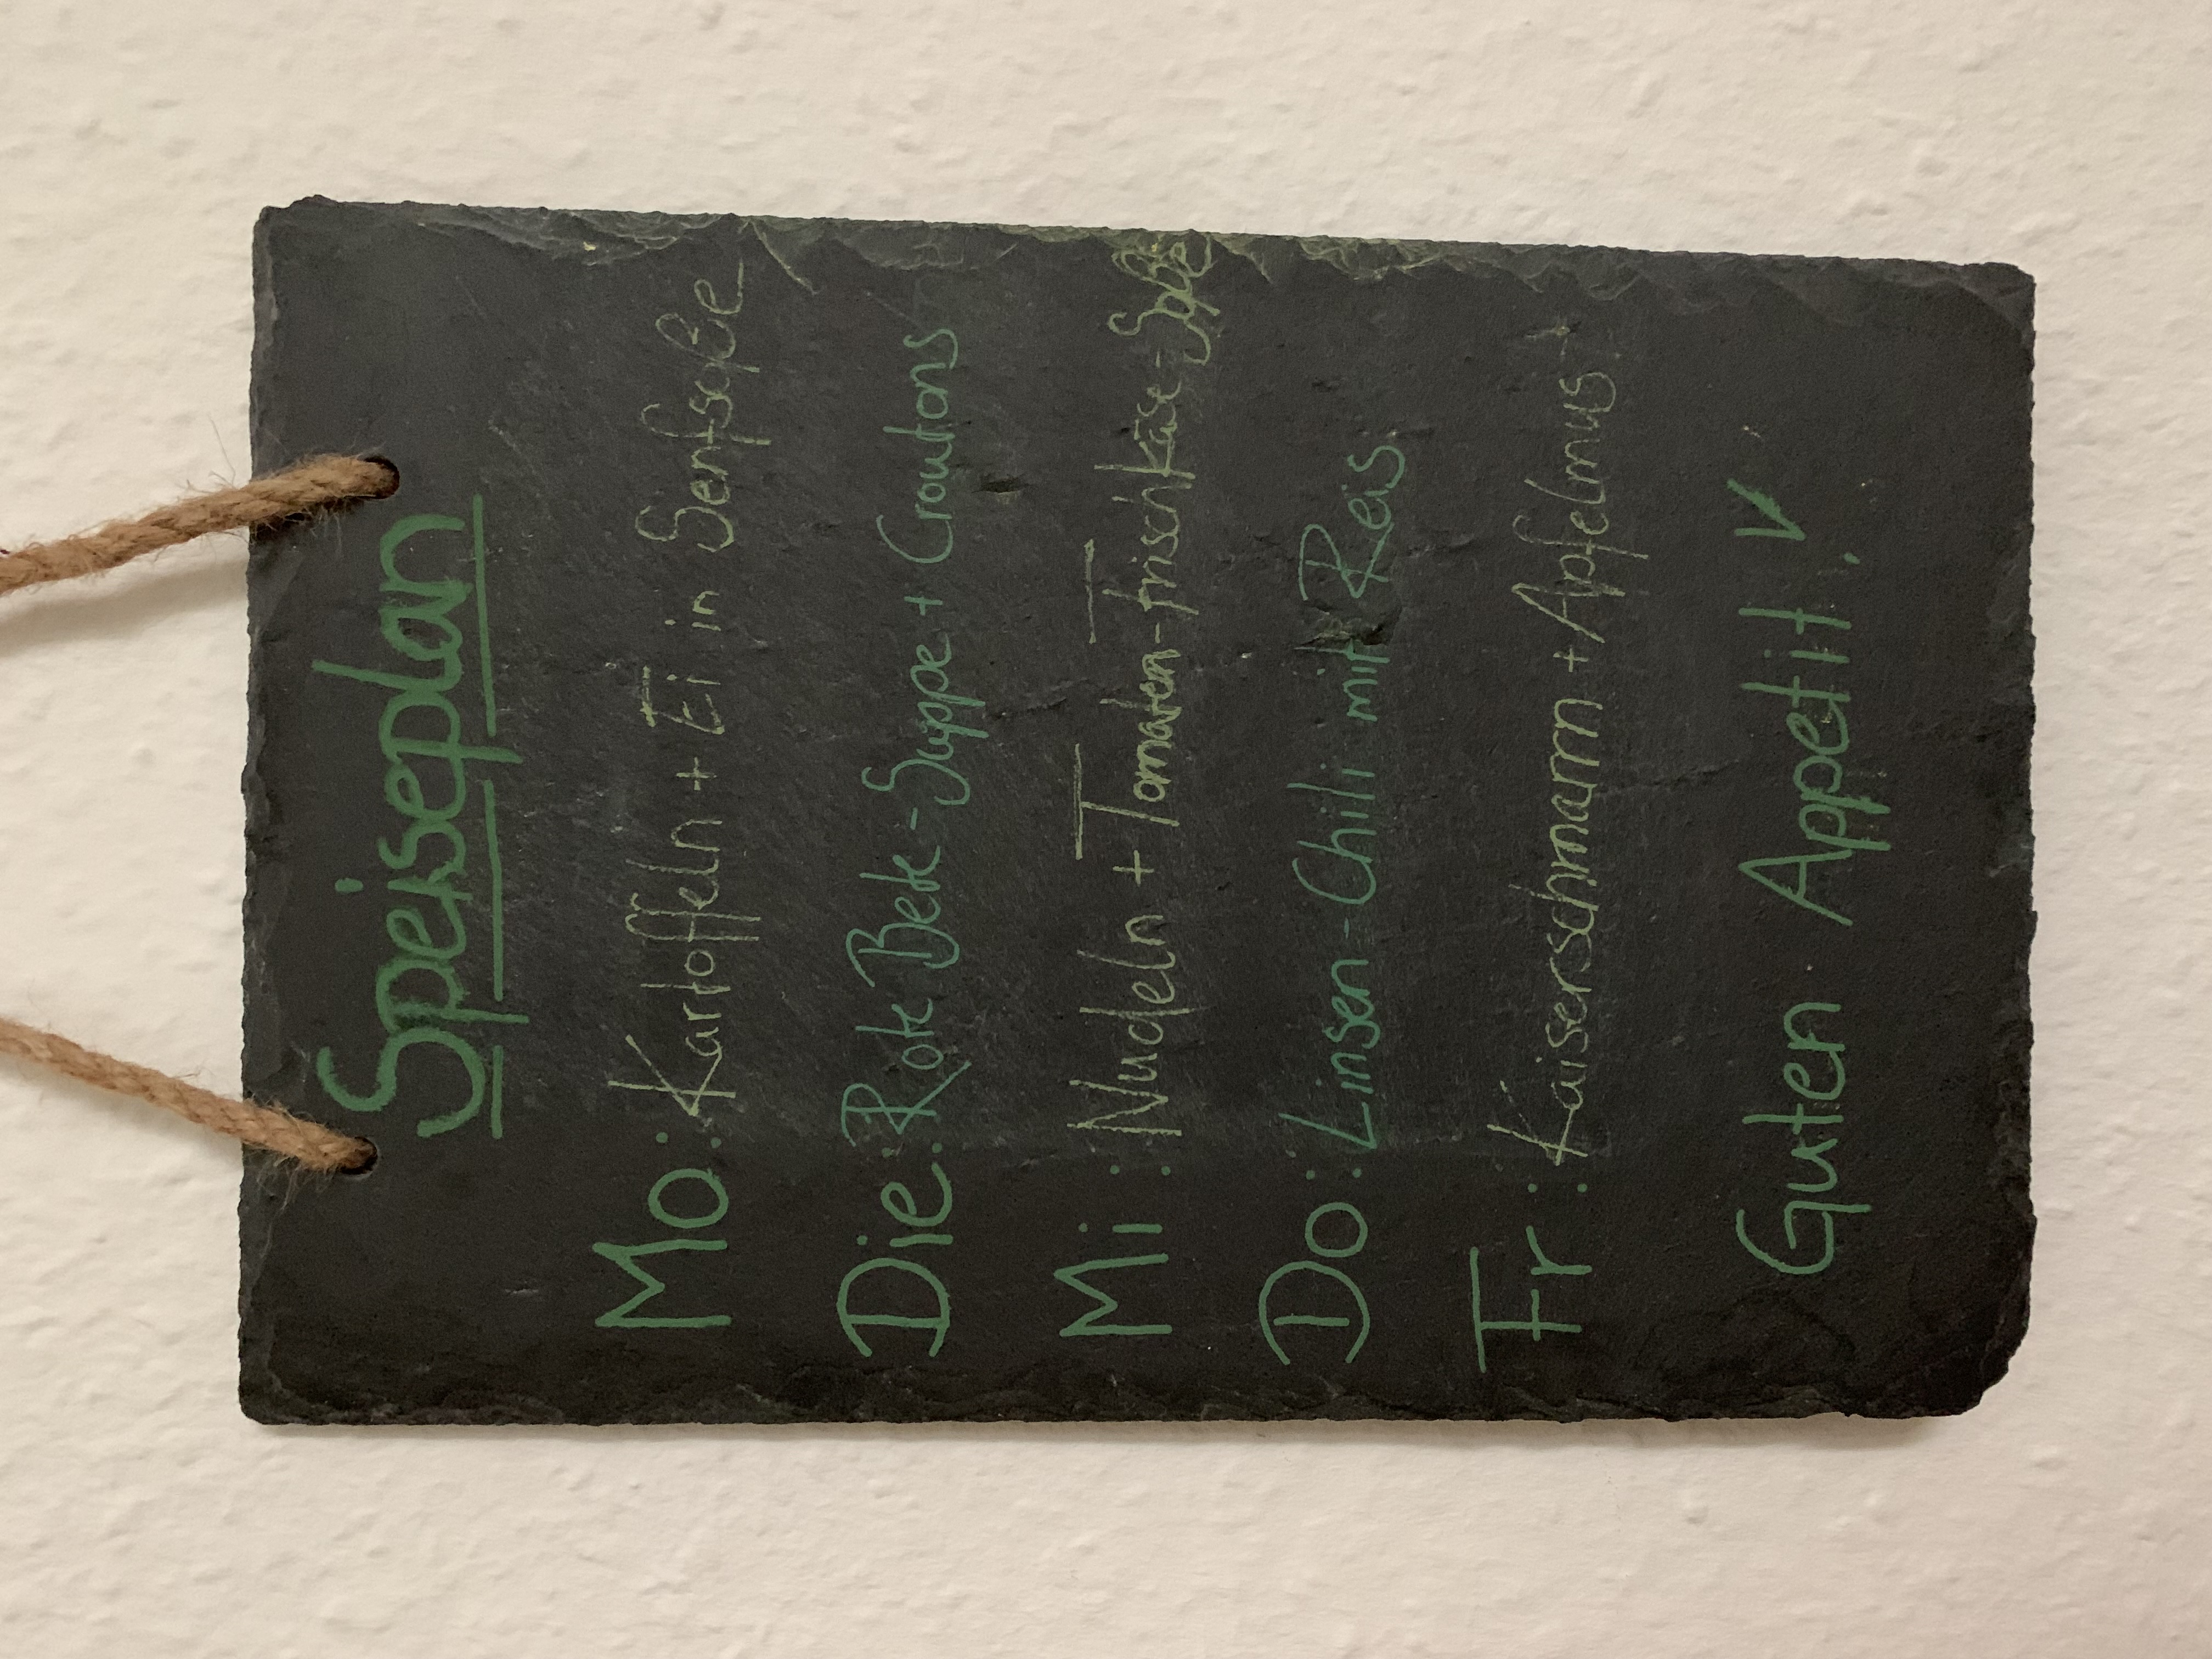 Speiseplan
Mo: Kartoffeln + Ei in Senfsoße
Die: Rote Bete-Suppe + Croutons
Mi: Nudeln + Tomaten-Frischkäse-Soße
Do: Linsen-Chili mit Reis
Fr: Kaiserschmarrn + Apfelmus
Guten Appetit!